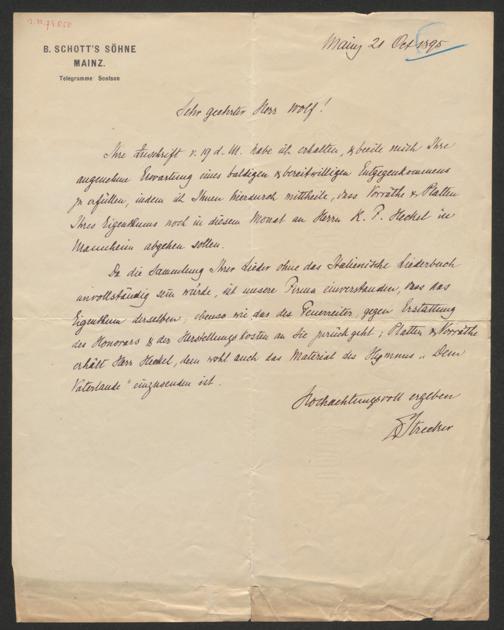 B. SCHOTT'S SÖHNE
MAINZ.
Telegramme Scotson
Mainz 21 Oct 1895
Sehr geehrter Herr Wolf!
Ihre Zuschrift v. 19 d. M. habe ich erhalten, & beeile mich Ihre
angenehme Erwartung eines baldigen & bereitwilligen Entgegenkommens
zu erfüllen, indem ich Ihnen hierdurch mittheile, dass Vorräthe & Platten
Ihres Eigenthums noch in diesem Monat an Herrn K. F. Heckel in
Mannheim abgehen sollen.
Da die Sammlung Ihrer Lieder ohne das Italienische Liederbuch
unvollständig sein würde, ist unsere Firma einverstanden, dass das
Eigenthum derselben, ebenso wie das des Feuerreiter, gegen Erstattung
des Honorars & der Herstellungskosten an Sie zurück geht; Platten & Vorräthe
erhält Herr Heckel, dem wohl auch das Material des Hymnus „Dem
Vaterlande" einzusenden ist.
Hochachtungsvoll ergeben
Strecker